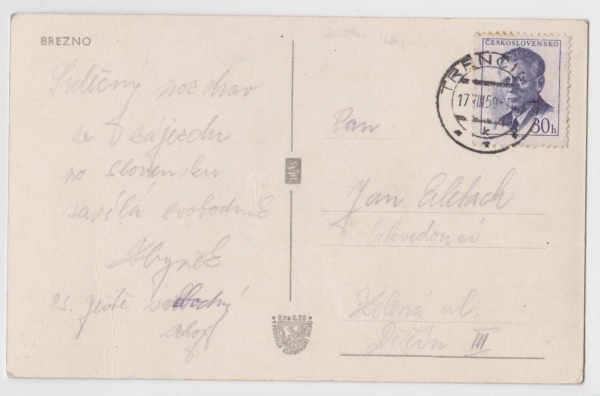 BREZNO
Srdečný pozdrav
ze zájezdu
po Slovensku
zasílá svobodník
Zbyněk
P.S. ještě svobodný
hoj
ČESKOSLOVENSKO
30h
TRENČÍN
17.VIII.59
k
Pan
Jan
Zelená ul.
Děčín III